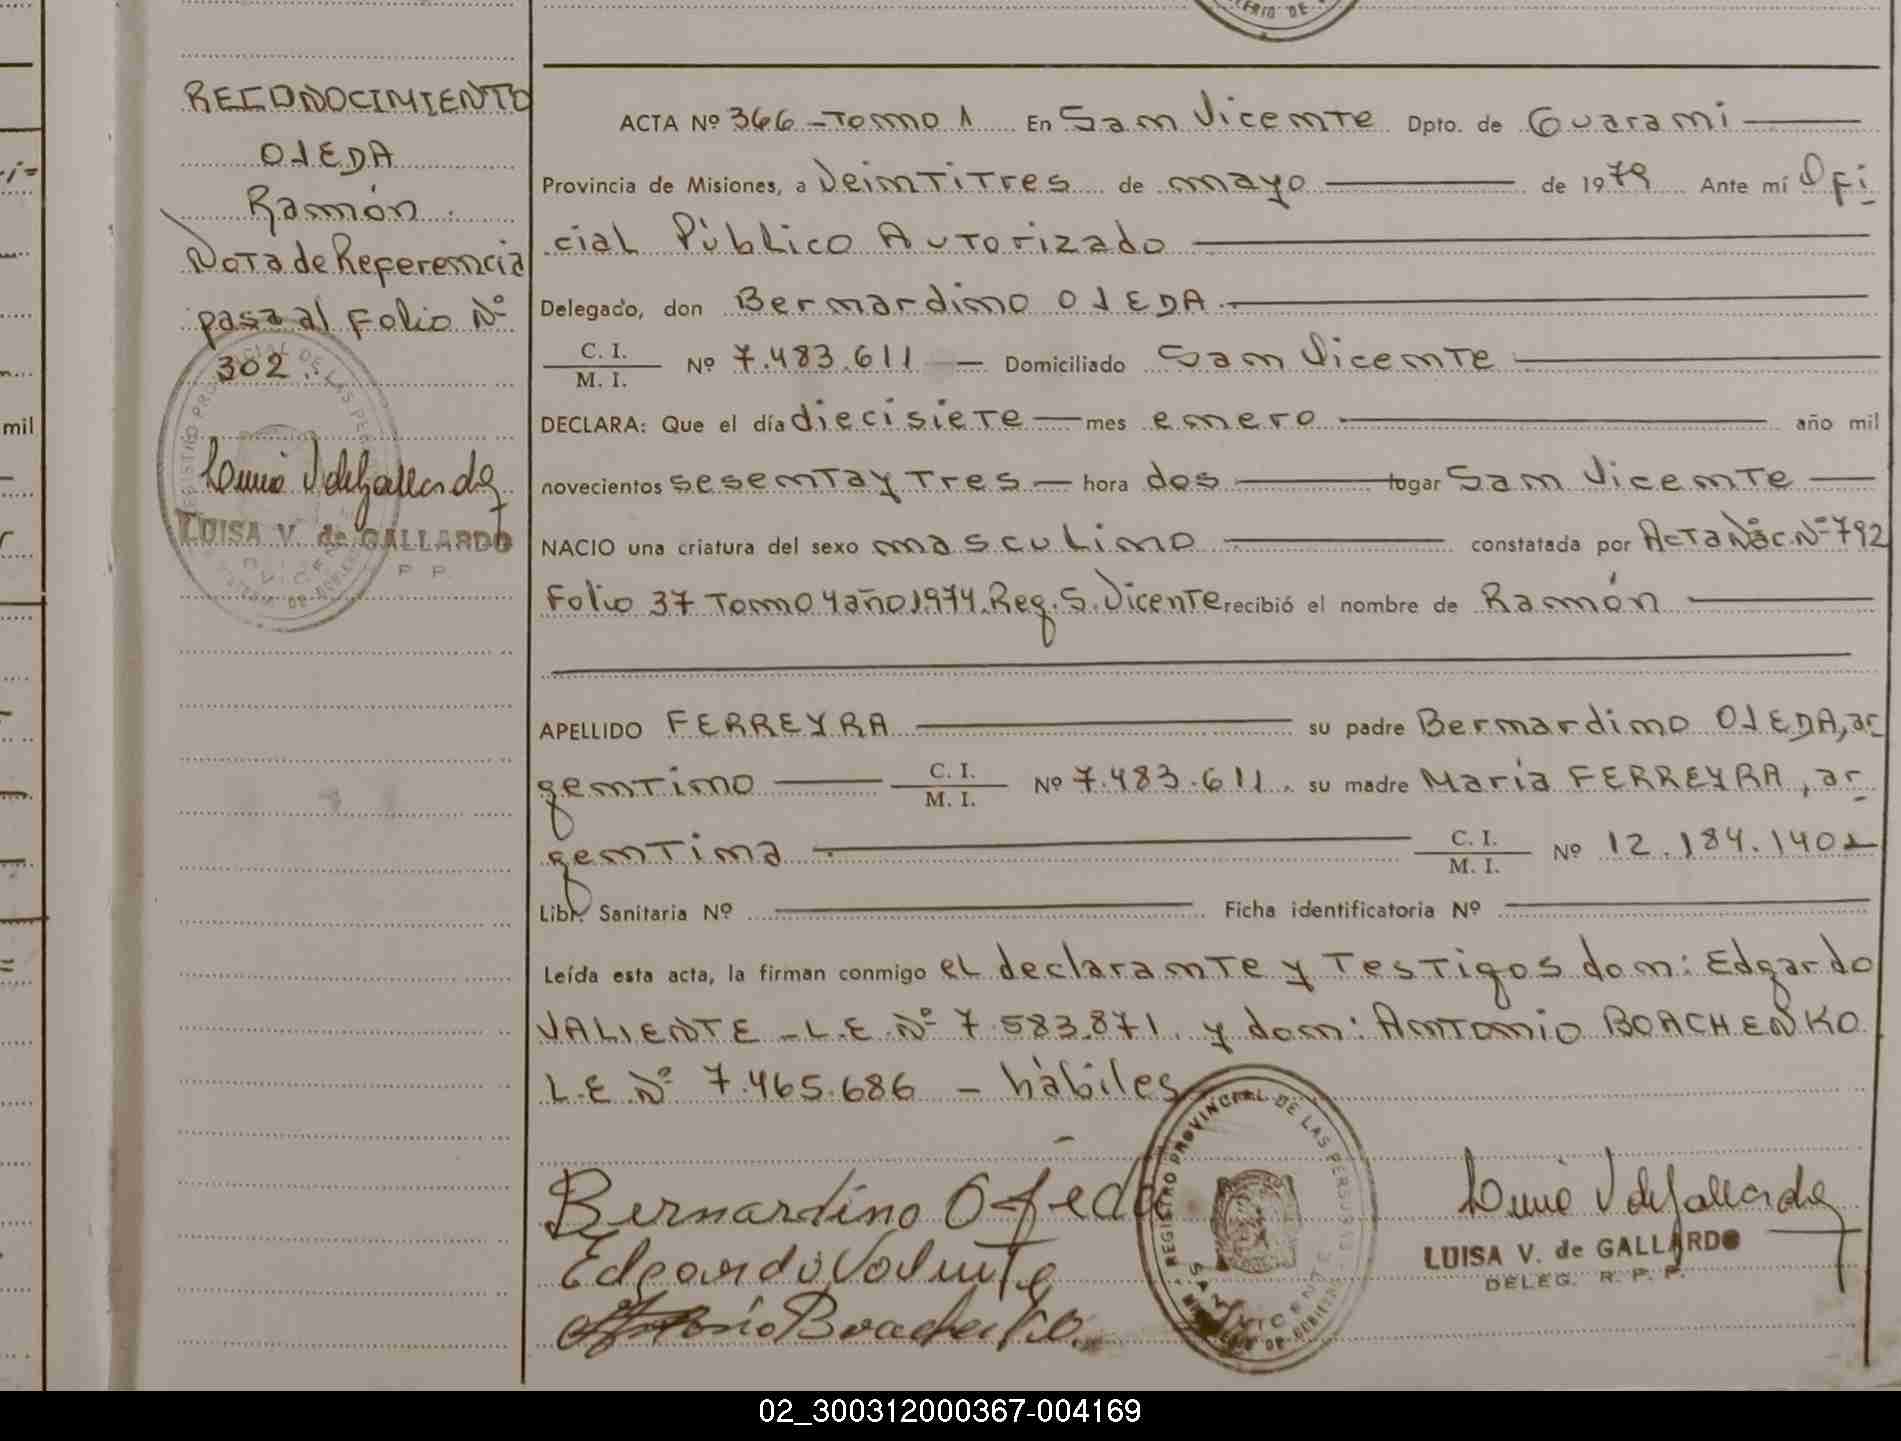 RECONOCIMIENTO
OJEDA
Ramón
Nota de Referencia
pasa al Folio Nº
302
LUISA V. de GALLARDO
ACTA Nº 366 - Tomo 1 En San Vicente Dpto. de Guaraní
Provincia de Misiones, a Veintitres de mayo de 1979 Ante mí Ofi
cial Público Autorizado
Delegado, don Bernardino OJEDA
C. I.
M. I. Nº 7.483.611 — Domiciliado San Vicente
DECLARA: Que el día diecisiete — mes enero año mil
novecientos sesenta y tres — hora dos lugar San Vicente
NACIO una criatura del sexo masculino constatada por Acta Nac. Nº 792
Folio 37 Tomo 4 año 1974. Reg. S. Vicente recibió el nombre de Ramón
APELLIDO FERREYRA su padre Bernardino OJEDA, ar
gentino C. I.
M. I. Nº 7.483.611. su madre María FERREYRA, ar
gentina C. I.
M. I. Nº 12.184.140
Libr. Sanitaria Nº Ficha identificatoria Nº
Leída esta acta, la firman conmigo el declarante y Testigos don: Edgardo
VALIENTE - L.E. Nº 7.583.871. y don: Antonio BOACHENKO
L.E Nº 7.465.686 - hábiles
Bernardino Ojeda
REGISTRO PROVINCIAL DE LAS PERSONAS
SAN VICENTE
LUISA V. de GALLARDO
DELEG. R. P. P.
02_300312000367-004169